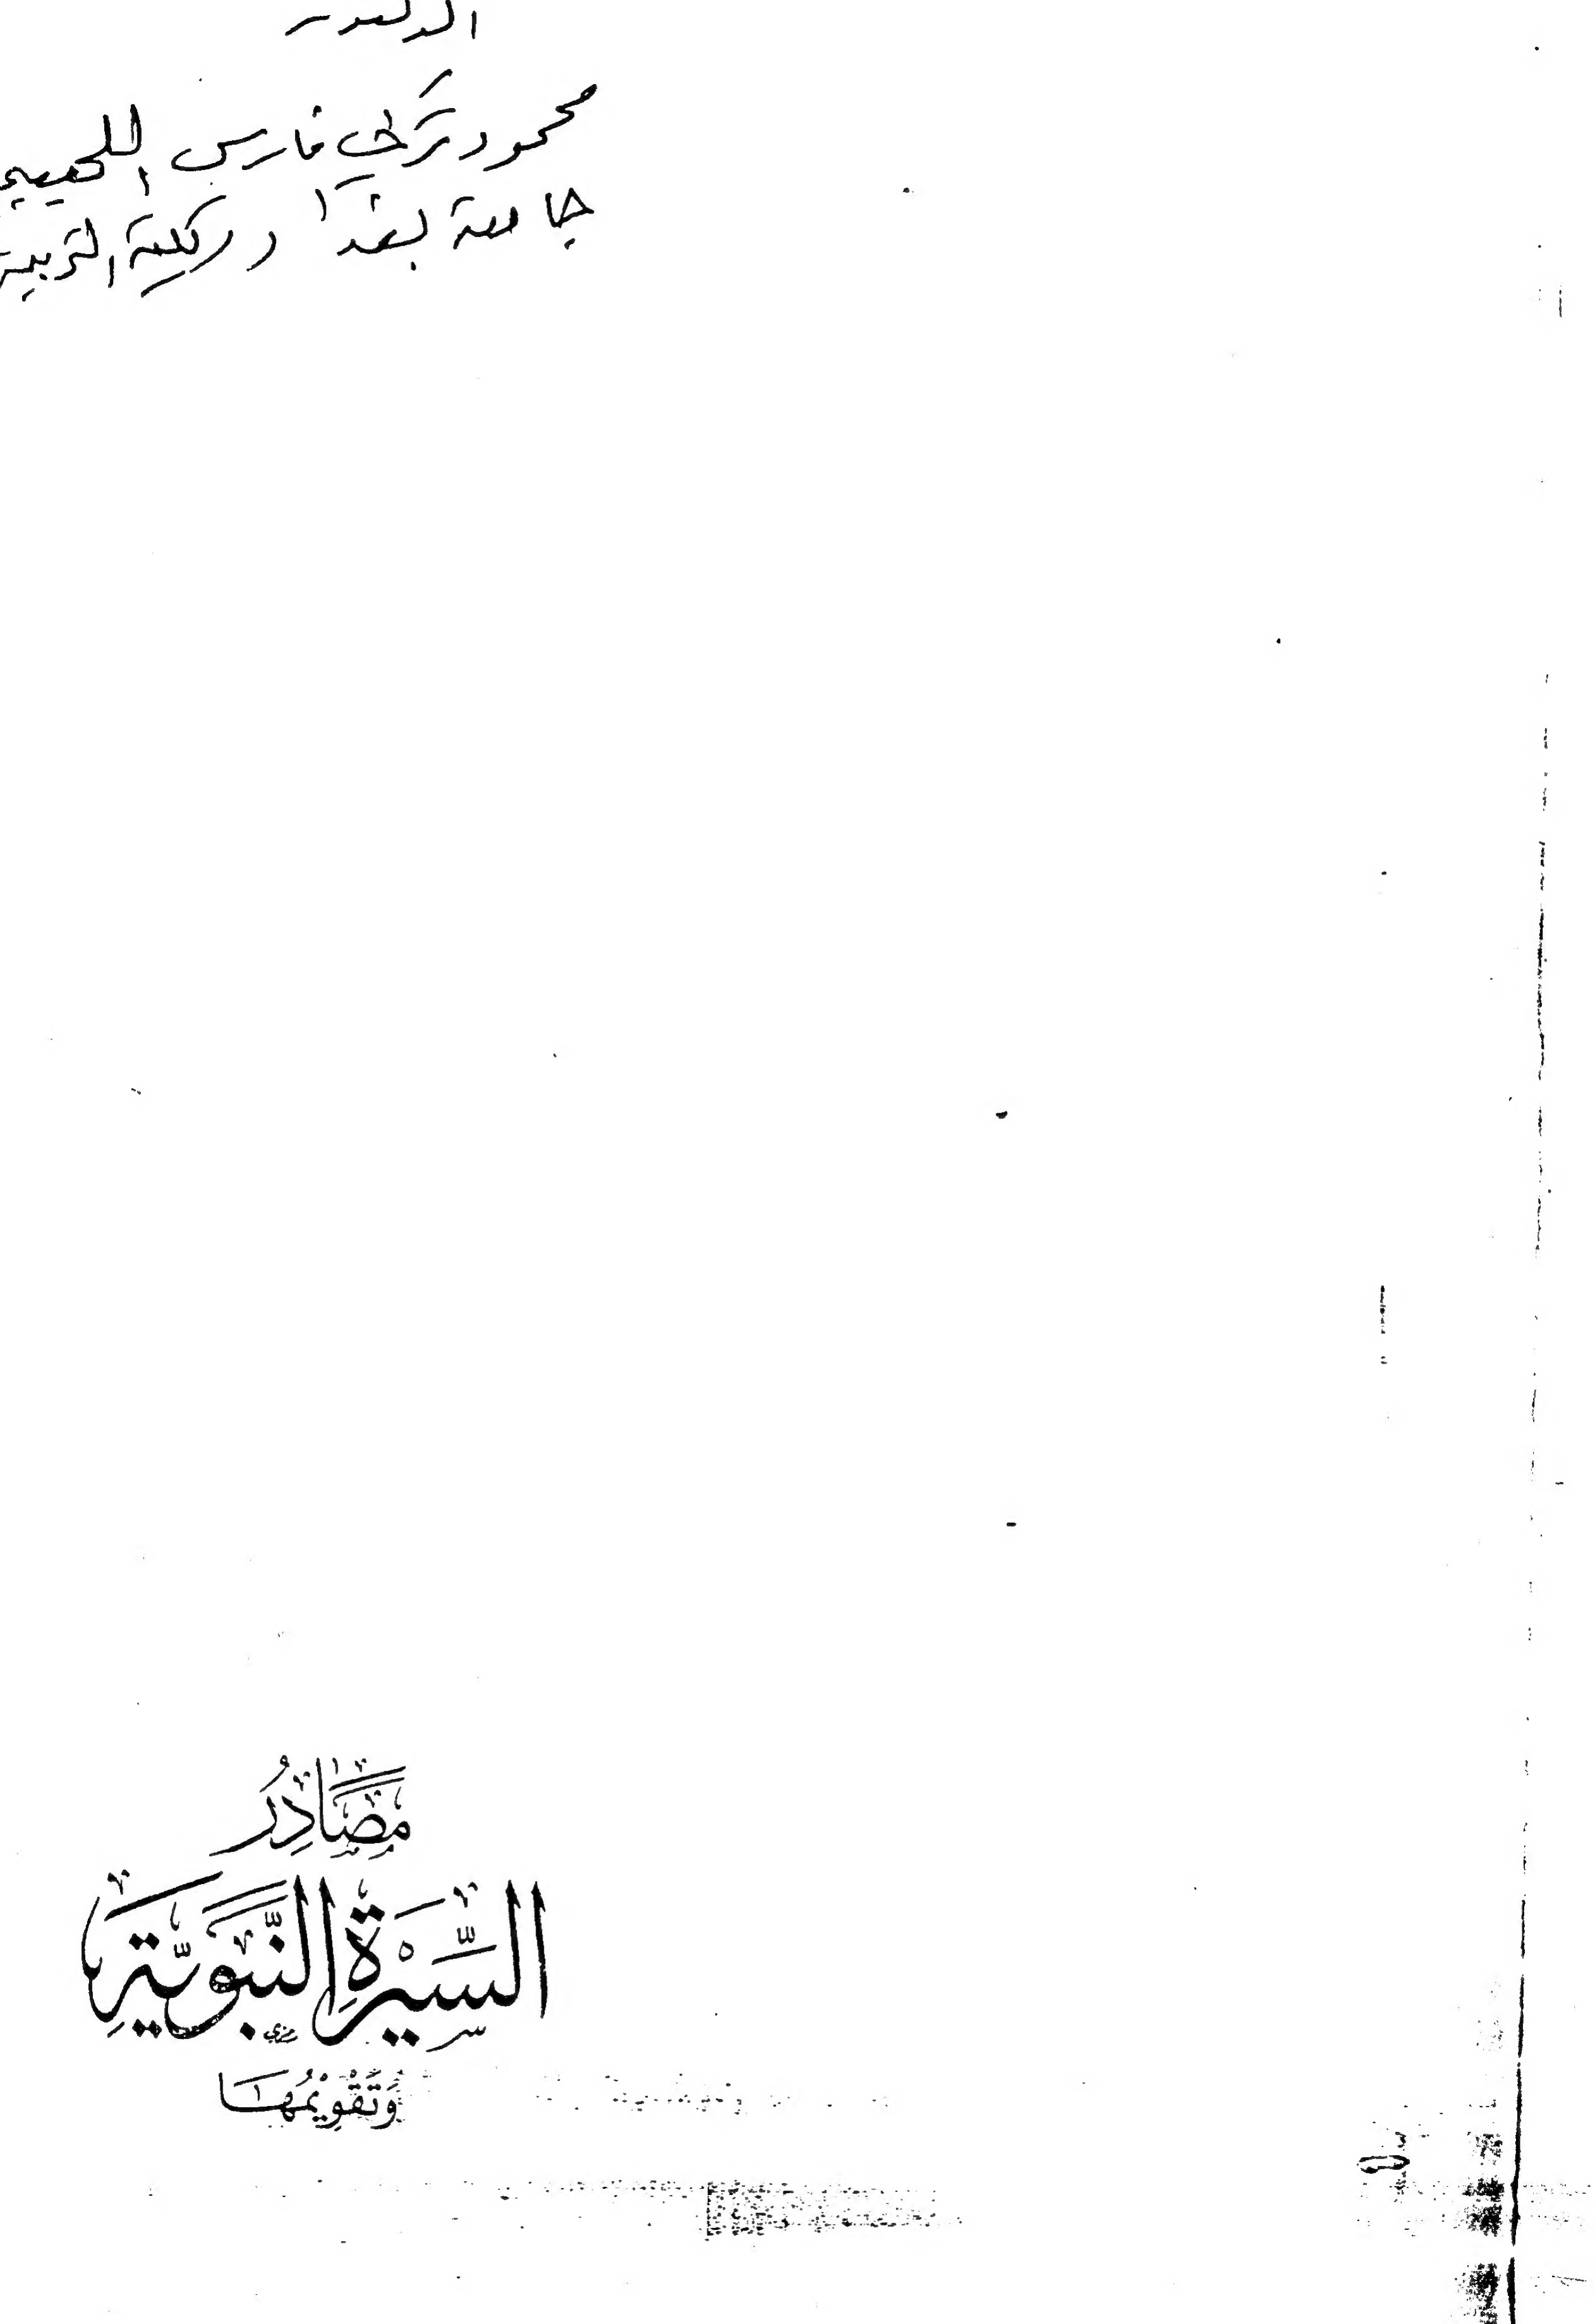 الدكتور
محمود تركي فارس اللهيبي
جامعة بغداد / كلية التربية
مَصَادِرُ
السِّيْرَةِ النَّبَوِيَّةِ
وَتَقْوِيْمُهَا